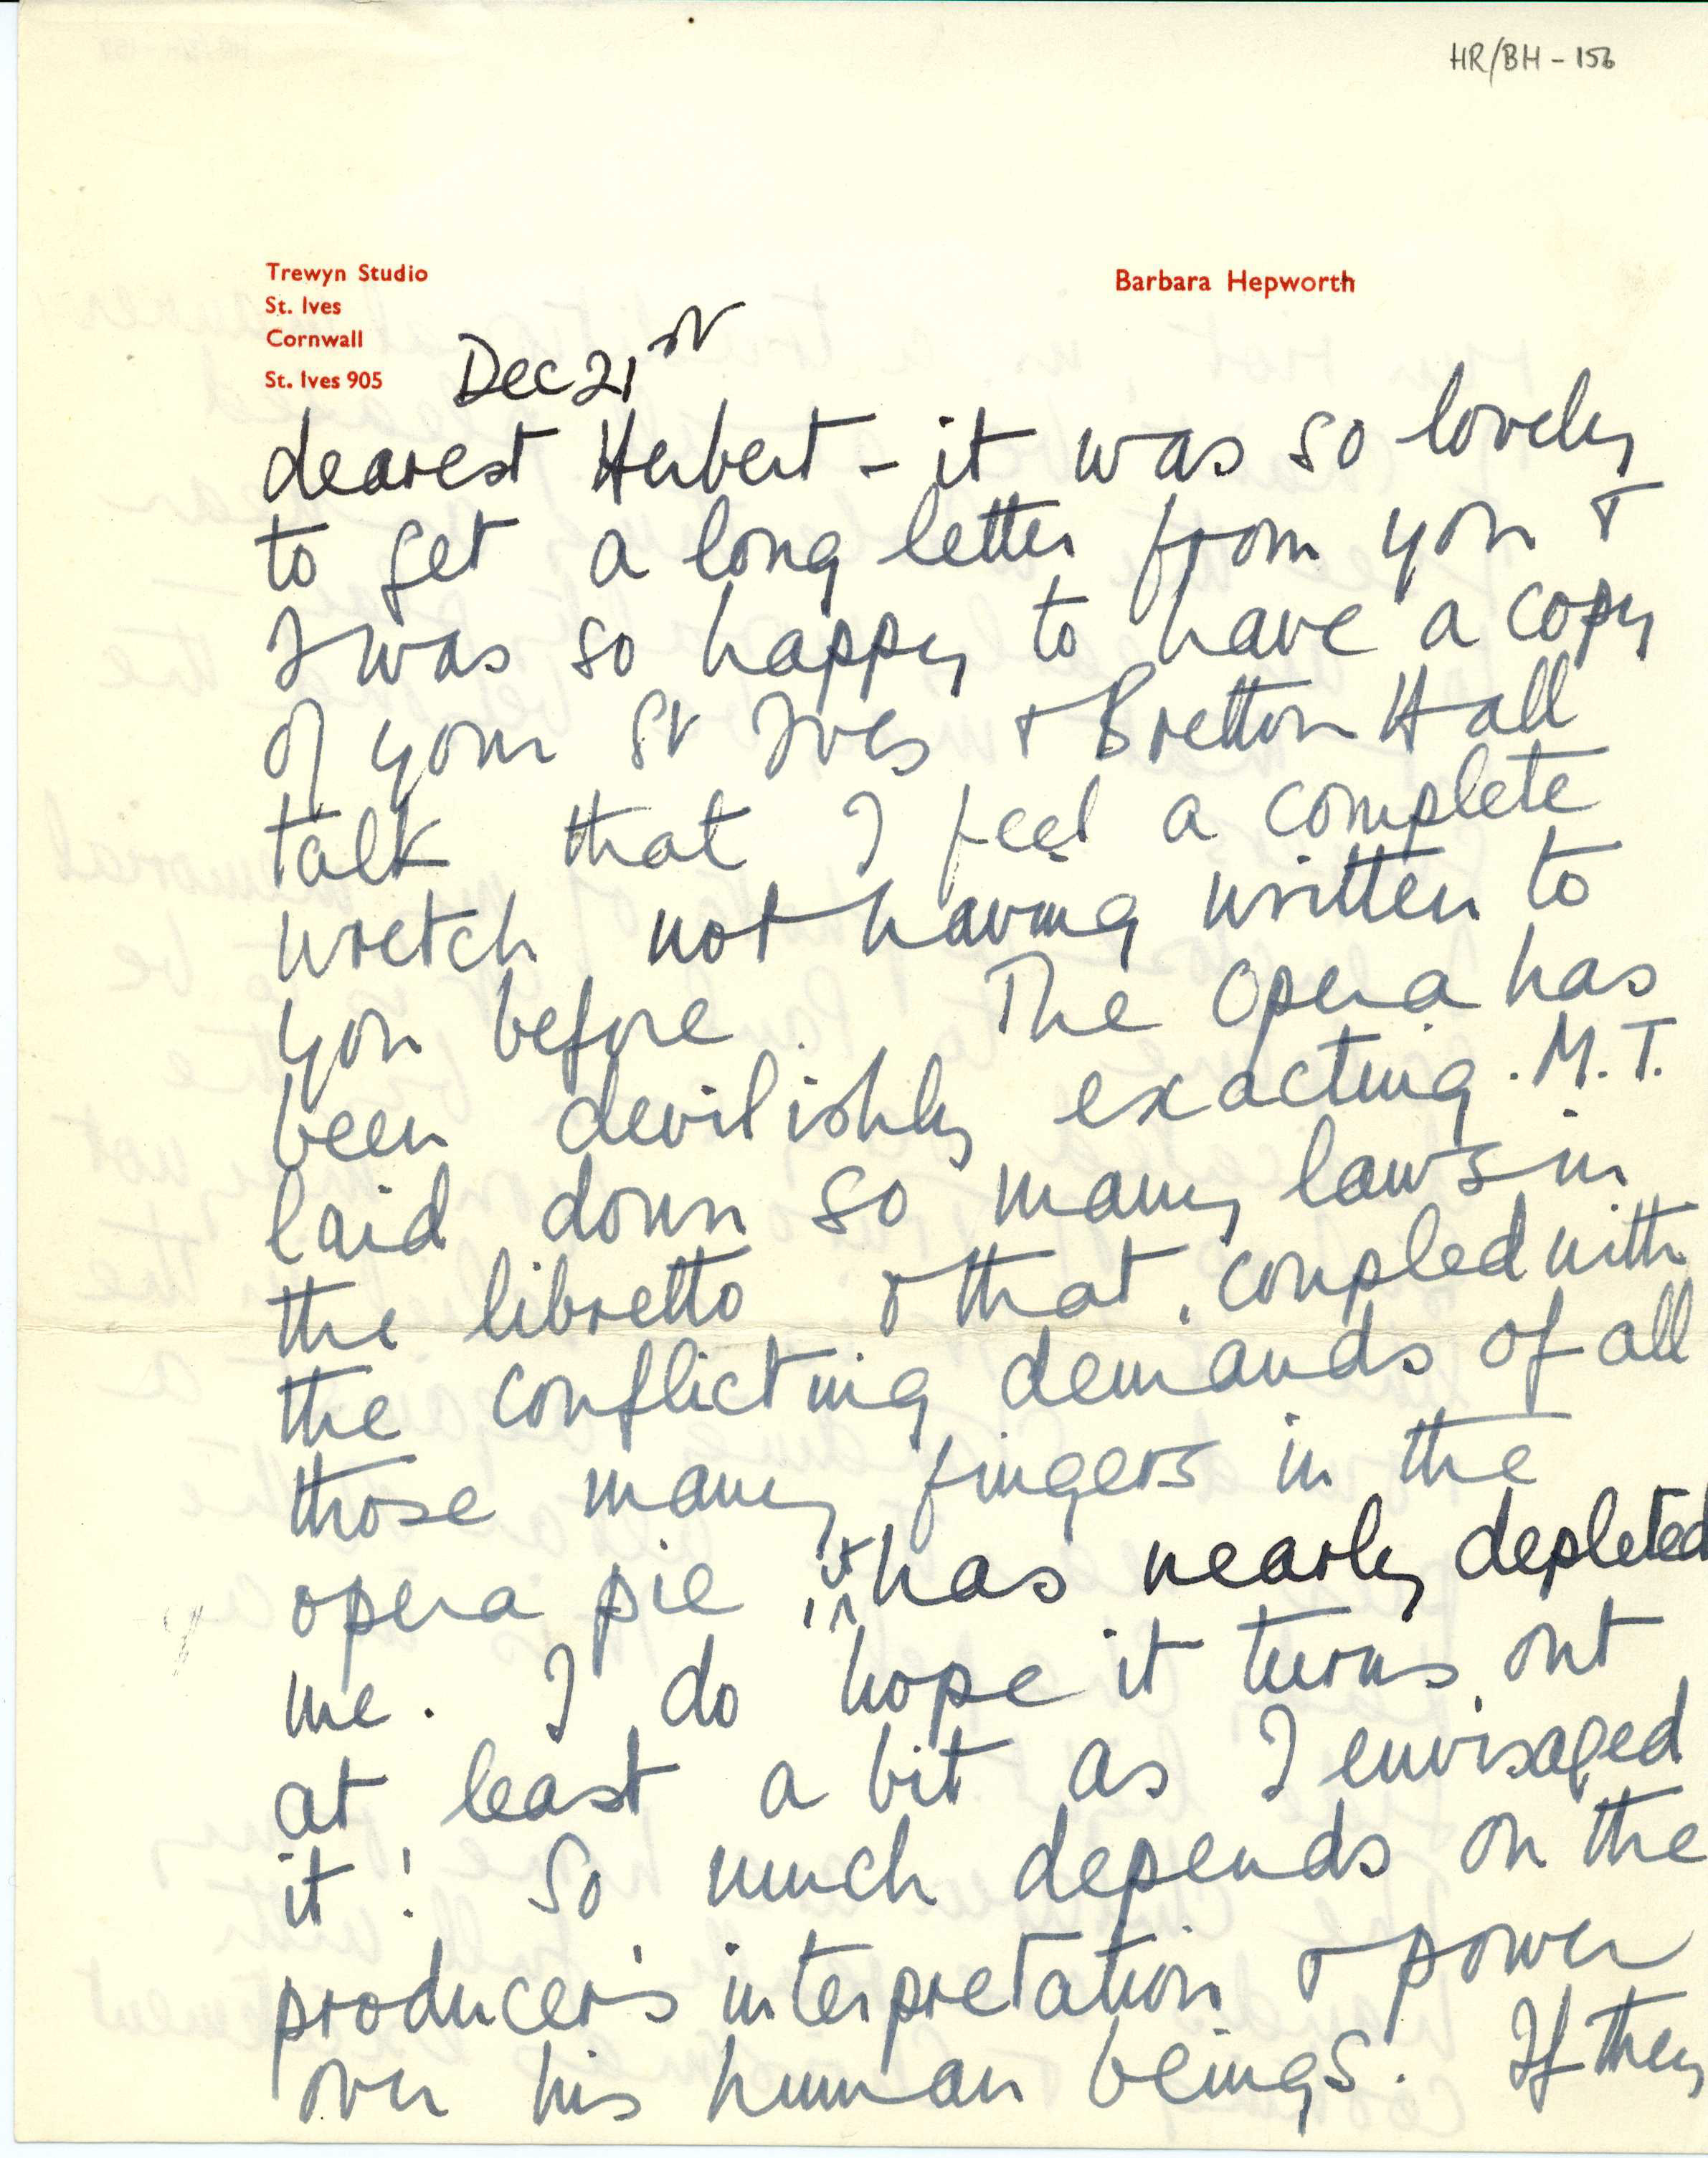 HR/BH - 156
Trewyn Studio
St. Ives
Cornwall
St. Ives 905
Barbara Hepworth
Dec 21st
dearest Herbert - it was so lovely
to get a long letter from you &
I was so happy to have a copy
of your St Ives & Bretton Hall
talk that I feel a complete
wretch not having written to
you before. The Opera has
been devilishly exacting. M.T.
laid down so many laws in
the libretto & that, coupled with
the conflicting demands of all
those many fingers in the
opera pie, it has nearly depleted
me. I do hope it turns out
at least a bit as I envisaged
it! So much depends on the
producer's interpretation & power
over his human beings. If they